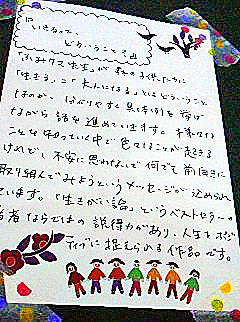 『いきるって、
どういうこと？』
「ふみクス先生」が 森の子供たちに
「生きる」こと「大人になる」とはどういうこと
なのか、わかりやすく具体例を挙げ
ながら 話を進めていきます。
ことを知っていく中で 色々なことが起きる
けれど、不安に思わないで 何でも 前向きに
取り組んでみようというメッセージが込められ
ています。「生きがい論」というベストセラーの
著者ならではの 説得力があり、人生を ポジ
ティブに 捉えられる 作品です。